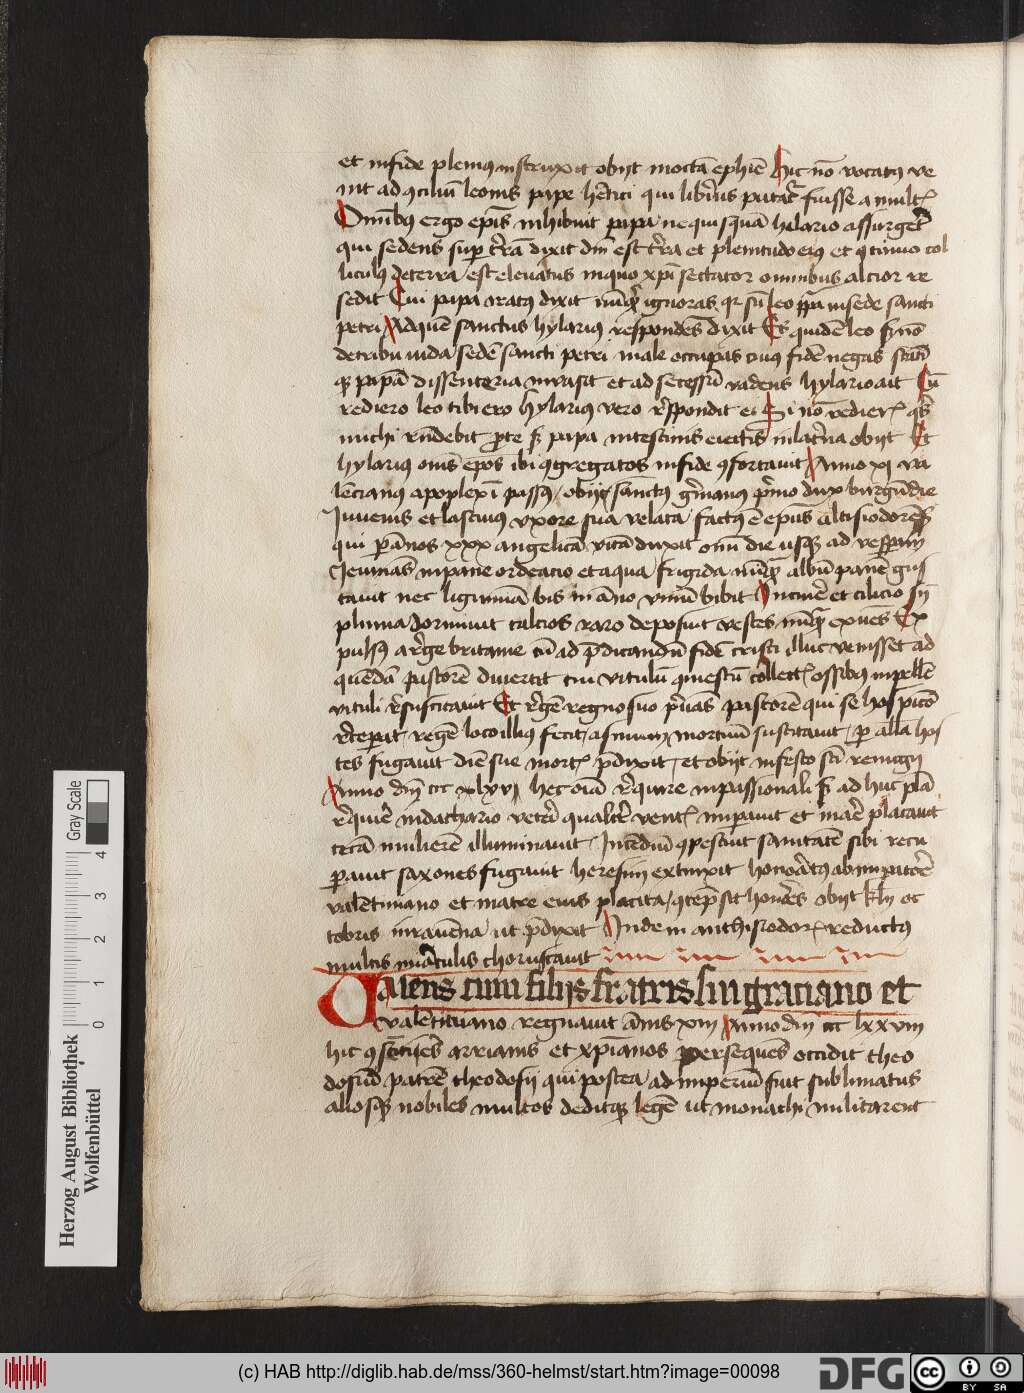 et infide plenius instruxit obijt nocta ephie Hic no vocatus ve
nit ad consiliu leonis pape heretici qui liberius putatur fuisse a multis
Omibus ergo epis inhibuit papa ne quisquam hilario assurgeret
qui sedens super terra dixit dni est terra et plenitudo eius et continuo col
liculus de terra est elevatus in quo xpi sectator omnibus altior re
sedit Cui papa iratus dixit nuquid ignoras quia su leo papa in sede sancti
petri Ad que sanctus hylarius respondes dixit Es quide leo sed no
de tribu iuda sede sancti petri male occupas cuius fide negas stati
papa dissenteria invasit et ad secessu vadens hylario ait Cu
rediero leo tibi ero hylarius vero respondit ei Si no redieris quis
michi respondebit pro te sed papa intestinis eiectis in latrina obijt Et
hylarius omes epos ibi congregatos in fide confortavit Anno xi va
lentianus apoplexi passus obijt sanctus germanus primo dux burgundie
Juvenis et lascivus uxore sua velata factus e epus altisiodorensis
qui per annos xxx angelica vita duxit omi die usque ad vesperam
Jeiunas in pane ordeacio et aqua frigida nunquam albu pane gus
tavit nec ligumina bis in anno vinu bibit In cinere et cilicio sine
pluma dormivit calcios raro deposuit vestes nunquam exuens Ex
pulsus a rege britanie cu ad predicandu fide cristi illuc venisset ad
quenda pastore divertit cui vitulu comestu collectis ossibus in pelle
vituli resuscitavit Et rege regno suo privas pastore qui se hospicio
receperat rege loco illius fecit asinum mortuu suscitavit per alla hos
tes fugavit die sue mortis predixit et obijt in festo sci remigij
Anno dni ccc xlvi hec oia require in passionali sed ad huc pla
require in dachario veteri qualiter ventis imperavit et mare placavit
ceca muliere illuminavit Incediu copescuit sanitate sibi recu
peravit saxones fugavit heresim extinxit honoratus ab imperatore
valentiniano et matre eius placita contepsit honores obijt kl oc
tobris in ravenna ut predixit Inde in anthisiodorum reductus
multis miraculis choruscavit
Valens cum filijs fratris sui graciano et
valentiniano regnavit annis xiiij Anno dni ccc lxxviij
hic consentiens arrianis et xpianos persequens occidit theo
dosiu patre theodosij qui postea ad imperiu fuit sublimatus
aliosque nobiles multos deditque lege ut monachi militarent
Gray Scale
4
3
2
1
0
Herzog August Bibliothek
Wolfenbüttel
(c) HAB http://diglib.hab.de/mss/360-helmst/start.htm?image=00098
DFG
cc
BY SA